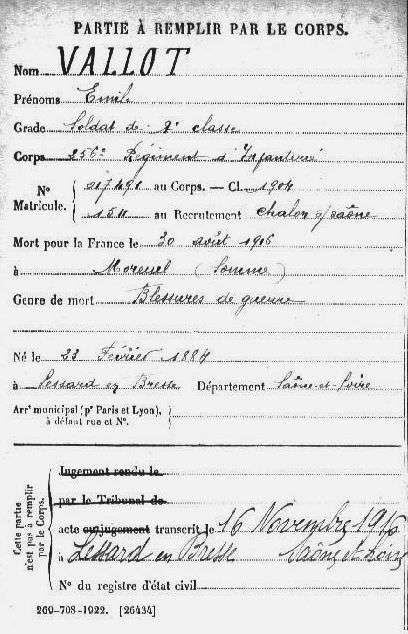 PARTIE À REMPLIR PAR LE CORPS.
Nom VALLOT
Prénoms Emile
Grade Soldat de 2e classe
Corps 256e Régiment d'Infanterie
N° Matricule. { 217491 au Corps. — Cl. 1904
1511 au Recrutement Chalon s/saône
Mort pour la France le 30 août 1916
à Moreuil (Somme)
Genre de mort Blessures de guerre
Né le 23 Février 1884
à Lessard en Bresse Département Saône-et-Loire
Arrt municipal (pr Paris et Lyon),
à défaut rue et N°.
Cette partie n'est pas à remplir par le Corps.
Jugement rendu le
par le Tribunal de
acte ou jugement transcrit le 16 Novembre 1916
à Lessard en Bresse Saône et Loire
N° du registre d'état civil
269-708-1922. [26434]